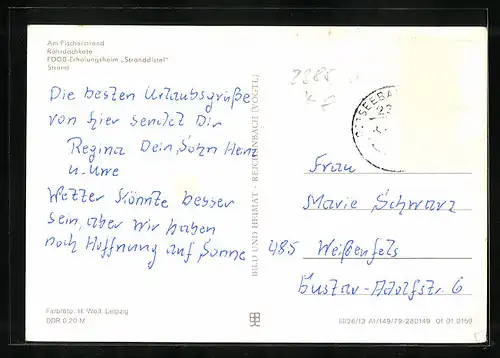 Am Fischerstrand
Rohrdachkate
FDGB-Erholungsheim „Stranddistel"
Strand
Die besten Urlaubsgrüße
von hier sendet Dir
Regina Dein Sohn Heinz
u. Uwe
Wetter könnte besser
sein, aber wir haben
noch Hoffnung auf Sonne
BILD UND HEIMAT · REICHENBACH (VOGTL)
SEEBA
Frau
Marie Schwarz
485 Weißenfels
Gustav-Adolfstr. 6
Farbfoto: H. Woll, Leipzig
DDR 0,20 M
A1/149/79-280149 01 01 0150